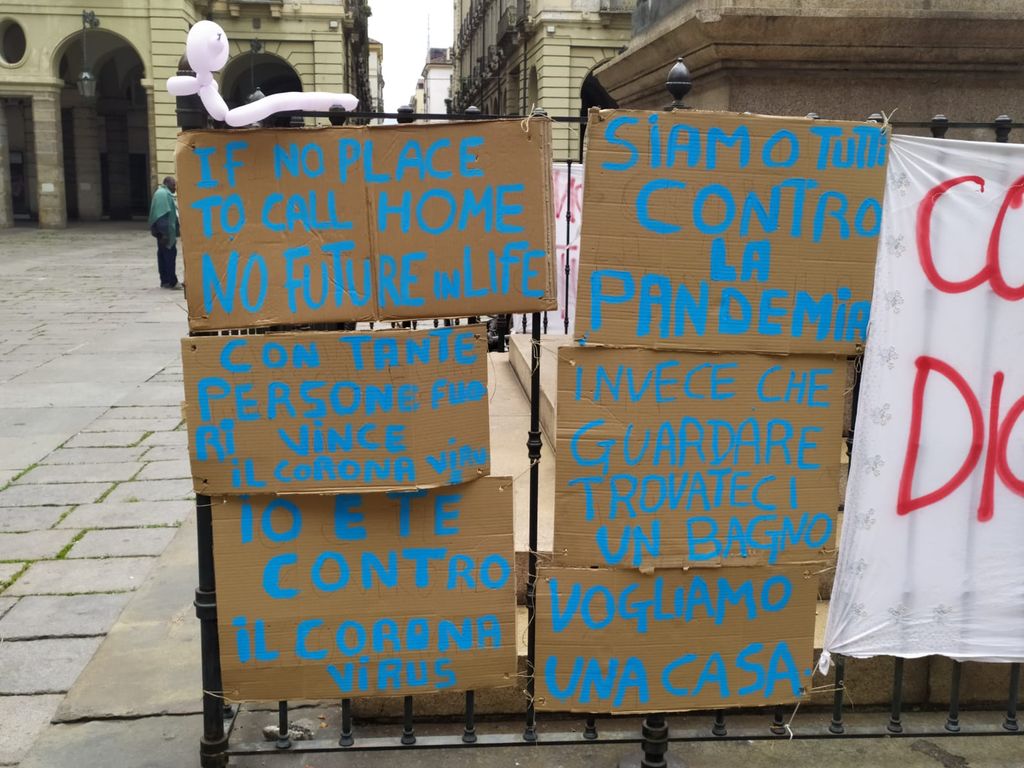 IF NO PLACE
TO CALL HOME
NO FUTURE in LIFE
CON TANTE
PERSONE FUO
RI VINCE
iL CORONA ViRU
IO E TE
CONTRO
iL CORONA
ViRUS
SiAMO TUTTi
CONTRO
LA
PANDEMiA
INVECE CHE
GUARDARE
TROVATECI
UN BAGNO
VOGLiAMO
UNA CASA.